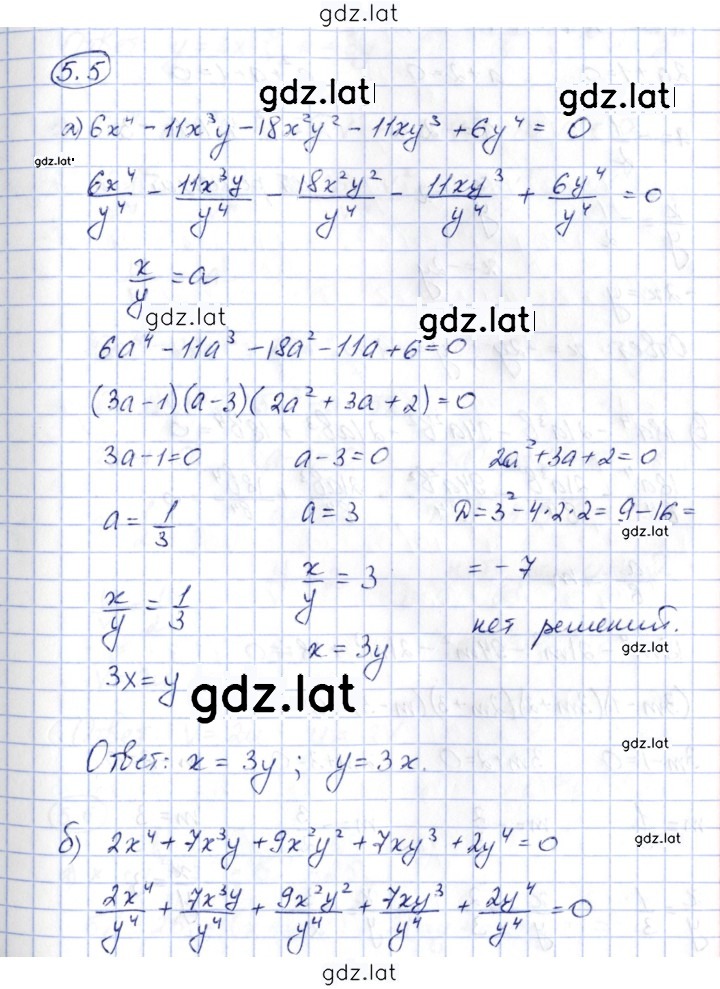 gdz.lat
5.5
gdz.lat
а) 6x⁴ - 11x³y - 18x²y² - 11xy³ + 6y⁴ = 0
gdz.lat
6x⁴/y⁴ - 11x³y/y⁴ - 18x²y²/y⁴ - 11xy³/y⁴ + 6y⁴/y⁴ = 0
x/y = a
gdz.lat gdz.lat
6a⁴ - 11a³ - 18a² - 11a + 6 = 0
(3a-1)(a-3)(2a² + 3a + 2) = 0
3a-1=0 a-3=0 2a²+3a+2=0
a = 1/3 a = 3 Д = 3² - 4·2·2 = 9-16 =
gdz.lat
x/y = 1/3 x/y = 3 = -7
x = 3y нет решений.
gdz.lat
3x = y
gdz.lat
gdz.lat
Ответ: x = 3y ; y = 3x.
gdz.lat
б) 2x⁴ + 7x³y + 9x²y² + 7xy³ + 2y⁴ = 0
2x⁴/y⁴ + 7x³y/y⁴ + 9x²y²/y⁴ + 7xy³/y⁴ + 2y⁴/y⁴ = 0
gdz.lat